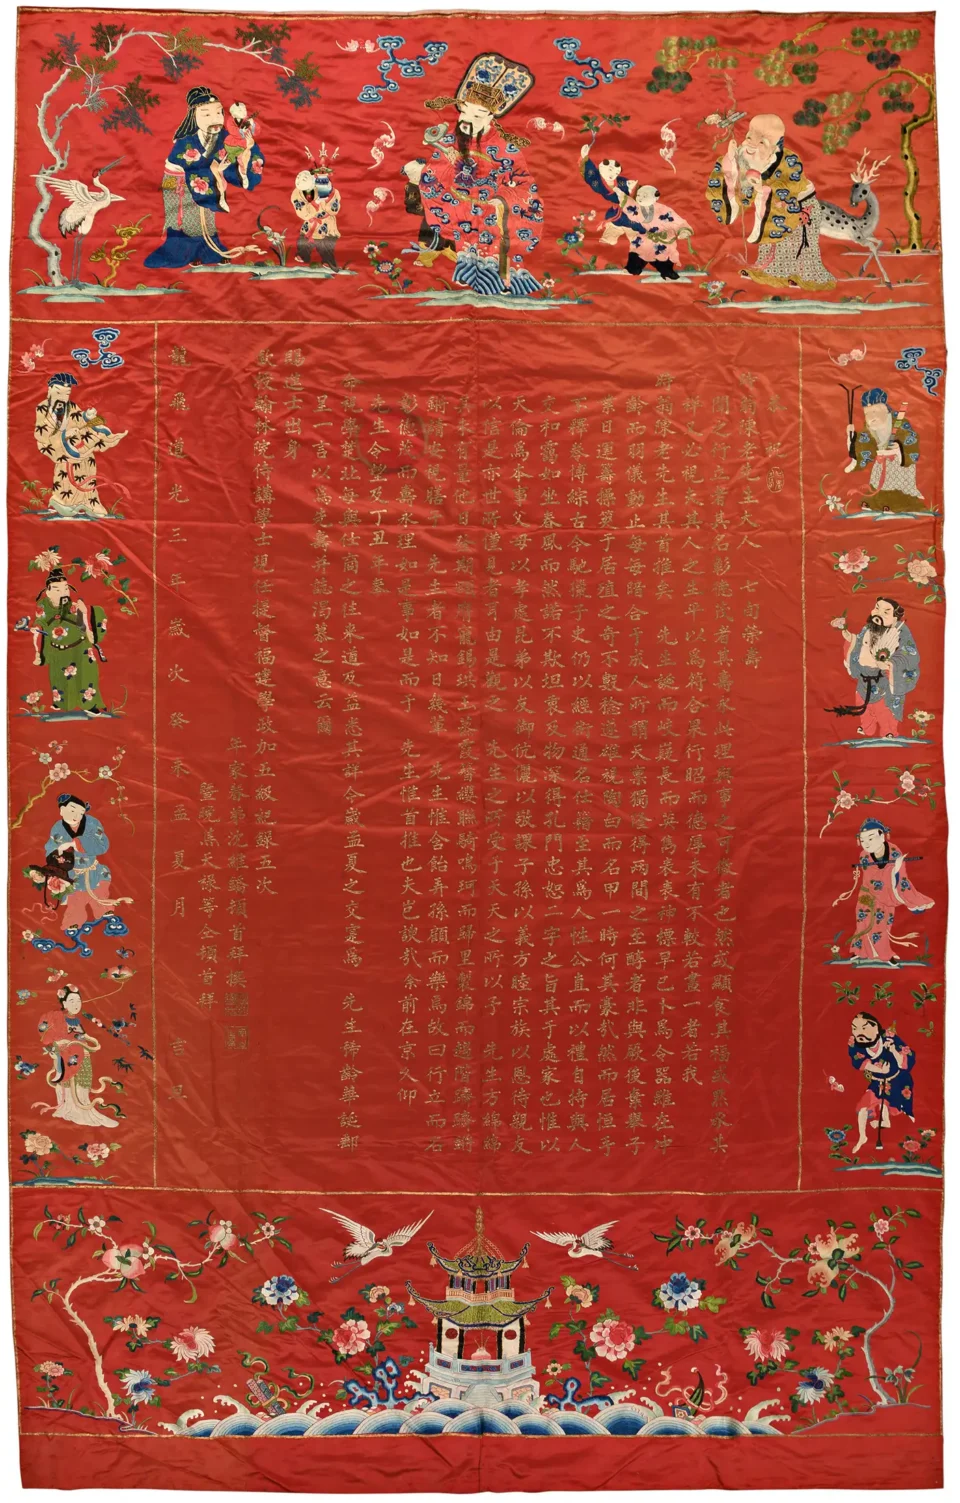 恭祝
翁陳老先生大人七旬榮壽
聞之行立者其名彰德茂者其壽永此理與事之可據者也然或顯食其福或默承其
祥又必視夫其人之生平以為符合果行昭而德厚未有不較若畫一者若我
翁陳老先生其首推矣 先生誕而岐嶷長而英雋表表神標早已卜為令器雖在冲
齡而羽儀動止每每暗合于成人所謂天稟獨隆得兩間之至醇者非與厥後棄舉子
業日運籌操算于居殖之奇不數稔遂雄視陶白而名甲一時何其豪哉然而居恒手
不釋卷博綜古今馳騁子史仍以經術通名仕籍至其為人性公直而以禮自持與人
交和靄如坐春風而然諾不欺坦衷及物深得孔門忠恕二字之旨其于處家也惟以
天倫為本事父母以孝處昆弟以友御伉儷以敬課子孫以義方睦宗族以恩待親友
以信是亦世所僅見者胥由是觀之 先生之所受于天天之所以予 先生方綿綿
其未有量他日登期頤 龍錫珙玉 霞簪纓聯騎鳴珂而歸里製錦而趨階躋躋蹌
蹌 安視膳于 先生者不知日幾 先生惟含飴弄孫顧而樂焉故曰行立而名
彰德茂而壽永理如是事如是而于 先生惟首推也夫豈諛哉余前在京久仰
先生令望及丁丑年奉
命視學越 每與仕商之往來道及益悉其詳今歲孟夏之交寔為 先生稀齡華誕鄙
呈一言以為先壽并誌渴慕之意云爾
賜進士出身
敕授翰林院侍講學士現任提督福建學政加五級紀錄五次
年家眷弟沈維鐈頓首拜撰
暨晚焦天祿等仝頓首拜
龍飛道光三年歲次癸未孟夏月吉旦